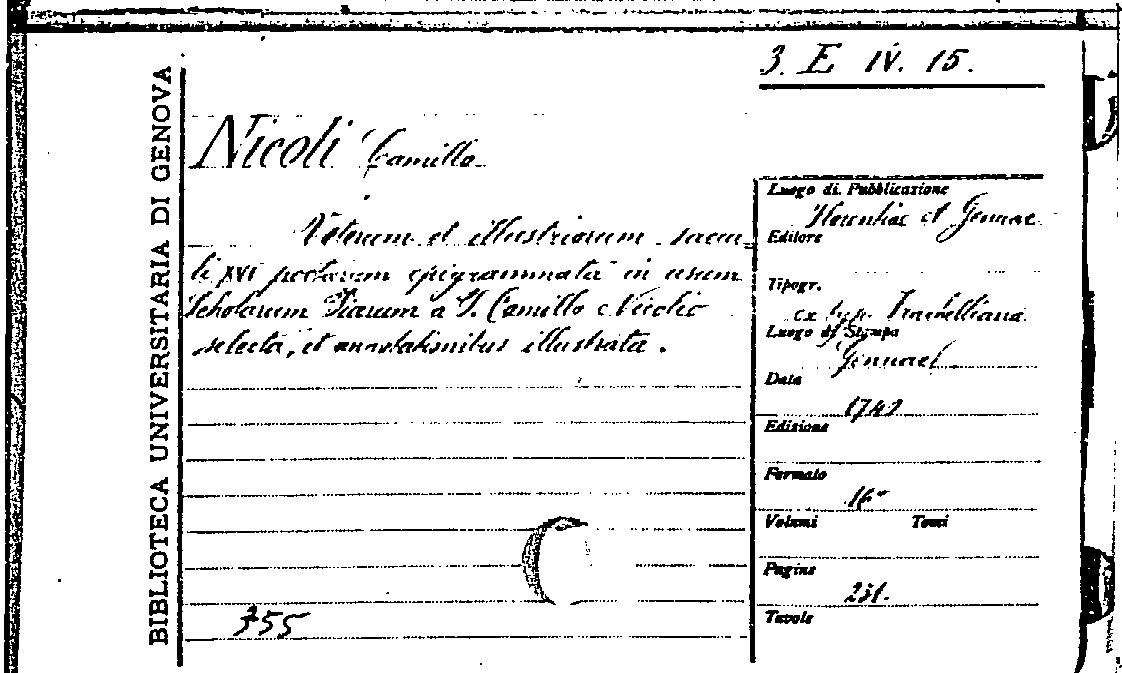 3. E IV. 15.
BIBLIOTECA UNIVERSITARIA DI GENOVA
Nicoli Camillo
Veterum et illustriorum saecu
li XVI poetarum epigrammata in usum
Scholarum Piarum a P. Camillo Nicolio
selecta, et annotationibus illustrata.
355
Luogo di Pubblicazione
Florentiae et Genuae
Editore
Tipogr.
ex typ. Franchelliana
Luogo di Stampa
Genuae
Data
174
Edizione
Formato
16°
Volumi Tomi
Pagine
231.
Tavole